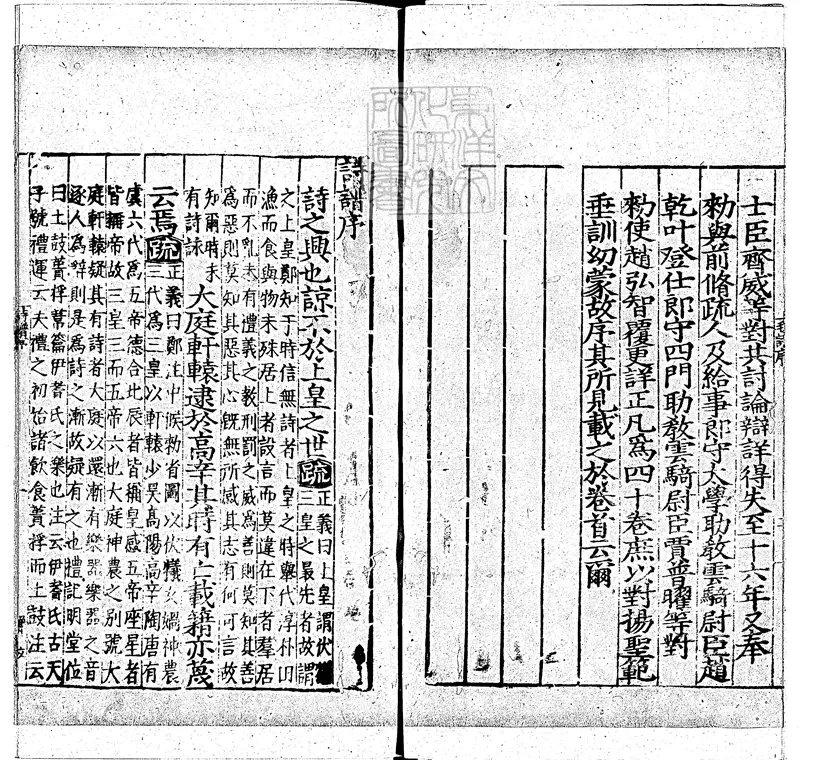 東洋文
化研究
所圖書
士臣齊威等對共討論辯詳得失至十六年又奉
勑與前脩疏人及給事郎守太學助教雲騎尉臣趙
乾叶登仕郎守四門助教雲騎尉臣賈普曜等對
勑使趙弘智覆更詳正凡爲四十卷庶以對揚聖範
垂訓幼蒙故序其所見載之於卷首云爾
詩譜序
詩之興也諒不於上皇之世疏
正義曰上皇謂伏犧
三皇之最先者故謂
之上皇鄭知于時信無詩者上皇之時舉代淳朴田
漁而食與物未殊居上者設言而莫違在下者羣居
而不亂未有禮義之教刑罰之威爲善則莫知其善
爲惡則莫知其惡其心旣無所感其志有何可言故
知爾時未
有詩詠
大庭軒轅逮於高辛其時有亡載籍亦蔑
云焉疏
正義曰鄭注中候勑省圖以伏犧女媧神農
三代爲三皇以軒轅少昊高陽高辛陶唐有
虞六代爲五帝德合北辰者皆稱皇感五帝座星者
皆稱帝故三皇三而五帝六也大庭神農之別號大
庭軒轅疑其有詩者大庭以還漸有樂器樂器之音
逐人爲辭則是爲詩之漸故疑有之也禮記明堂位
曰土鼓蕢桴葦籥伊耆氏之樂也注云伊耆氏古天
子號禮運云夫禮之初始諸飲食蕢桴而土鼓注云